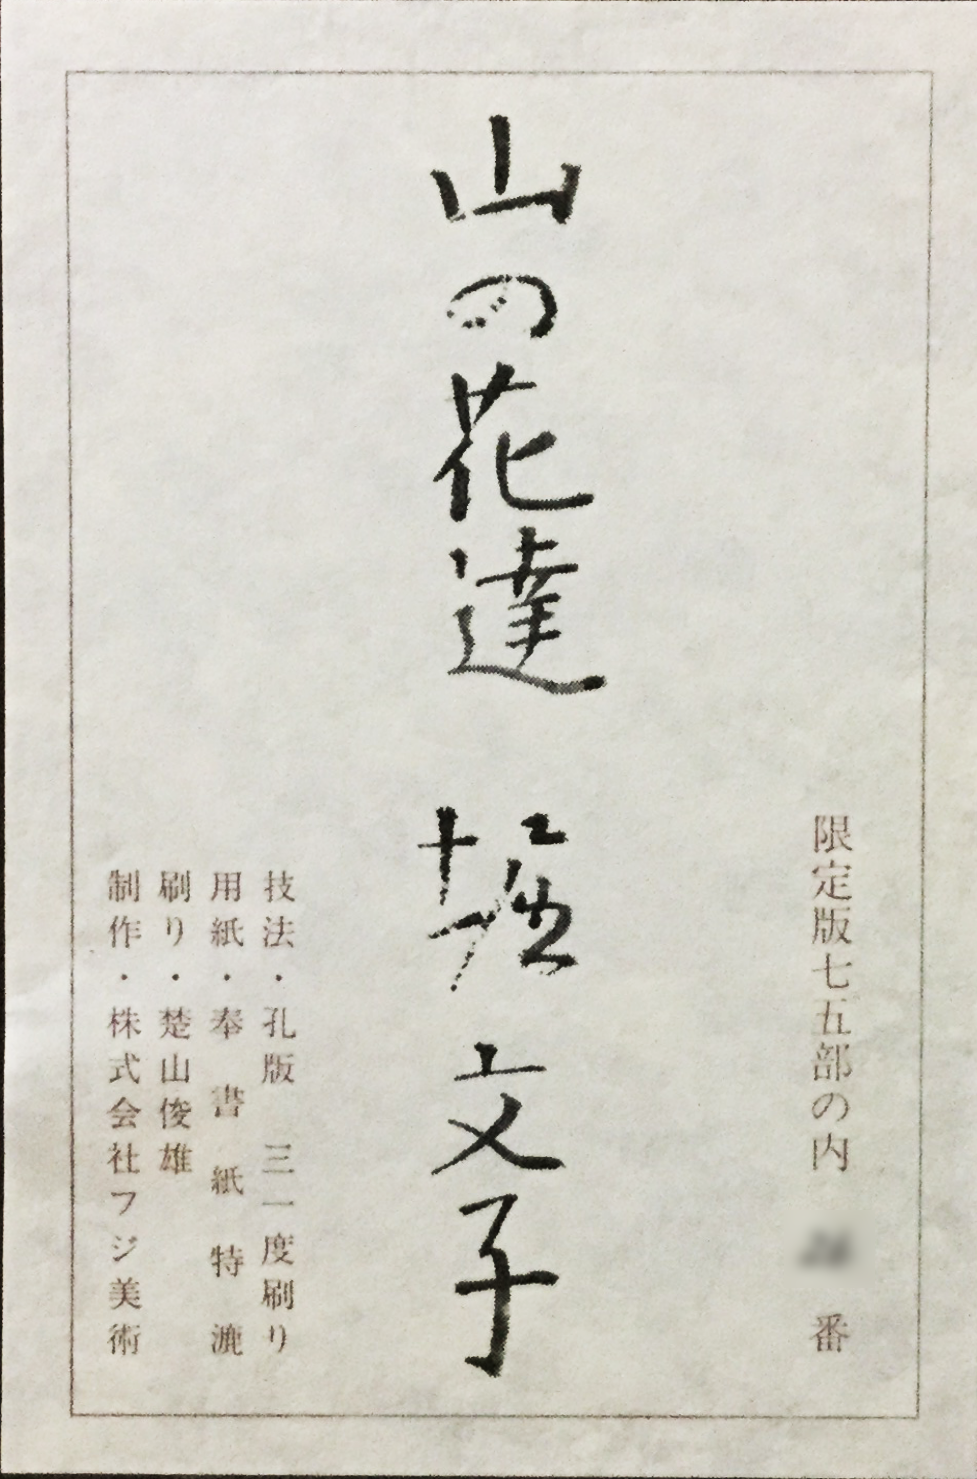 限定版七五部の内 番
山の花達 堀文子
技法・孔版 三一度刷り
用紙・奉書紙特漉
刷り・楚山俊雄
制作・株式会社フジ美術